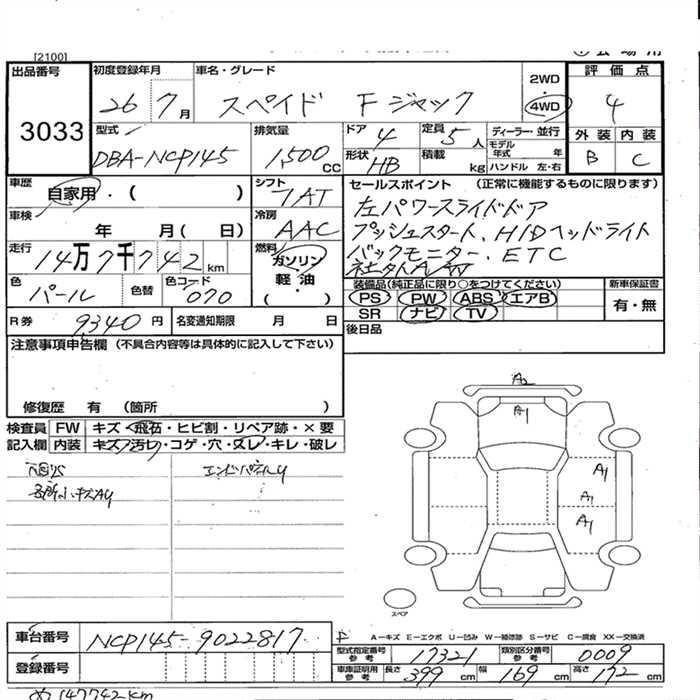 [2100]
出品番号 初度登録年月 車名・グレード 2WD 評価点
3033 26 7月 スペイド Fジャック 4WD 4
型式 排気量 ドア 4 定員 5人 ディーラー・並行 外装 内装
DBA-NCP145 1,500 CC 形状 HB 積載 kg モデル年式 年 B C
ハンドル 左・右
車歴 自家用・( ) シフト 7AT セールスポイント (正常に機能するものに限ります)
車検 年 月( 日) 冷房 AAC 左パワースライドドア
プッシュスタート、HIDヘッドライト
走行 14万7千742km 燃料 ガソリン 軽油・( ) バックモニター、ETC
社外A/W
色 パール 色替 色コード 070 装備品(純正品に限り○をつけてください) 新車保証書
PS PW ABS エアB 有・無
SR ナビ TV
R券 9340円 名変通知期限 月 日 後日品
注意事項申告欄 (不具合内容等は具体的に記入して下さい)
修復歴 有 (箇所 )
検査員 FW キズ・飛石・ヒビ割・リペア跡・×要
記入欄 内装 キズ・汚れ・コゲ・穴・スレ・キレ・破レ
A2
A1
各所小キズAU
A1
A1
A1
スペア
車台番号 NCP145-9022817
A-キズ E-エクボ U-凹み W-補修跡 S-サビ C-腐食 XX-交換済
型式指定番号 参考 17321 類別区分番号 参考 0009
登録番号 車庫証明用 参考 長さ 399 cm 幅 169 cm 高さ 172 cm
147742km